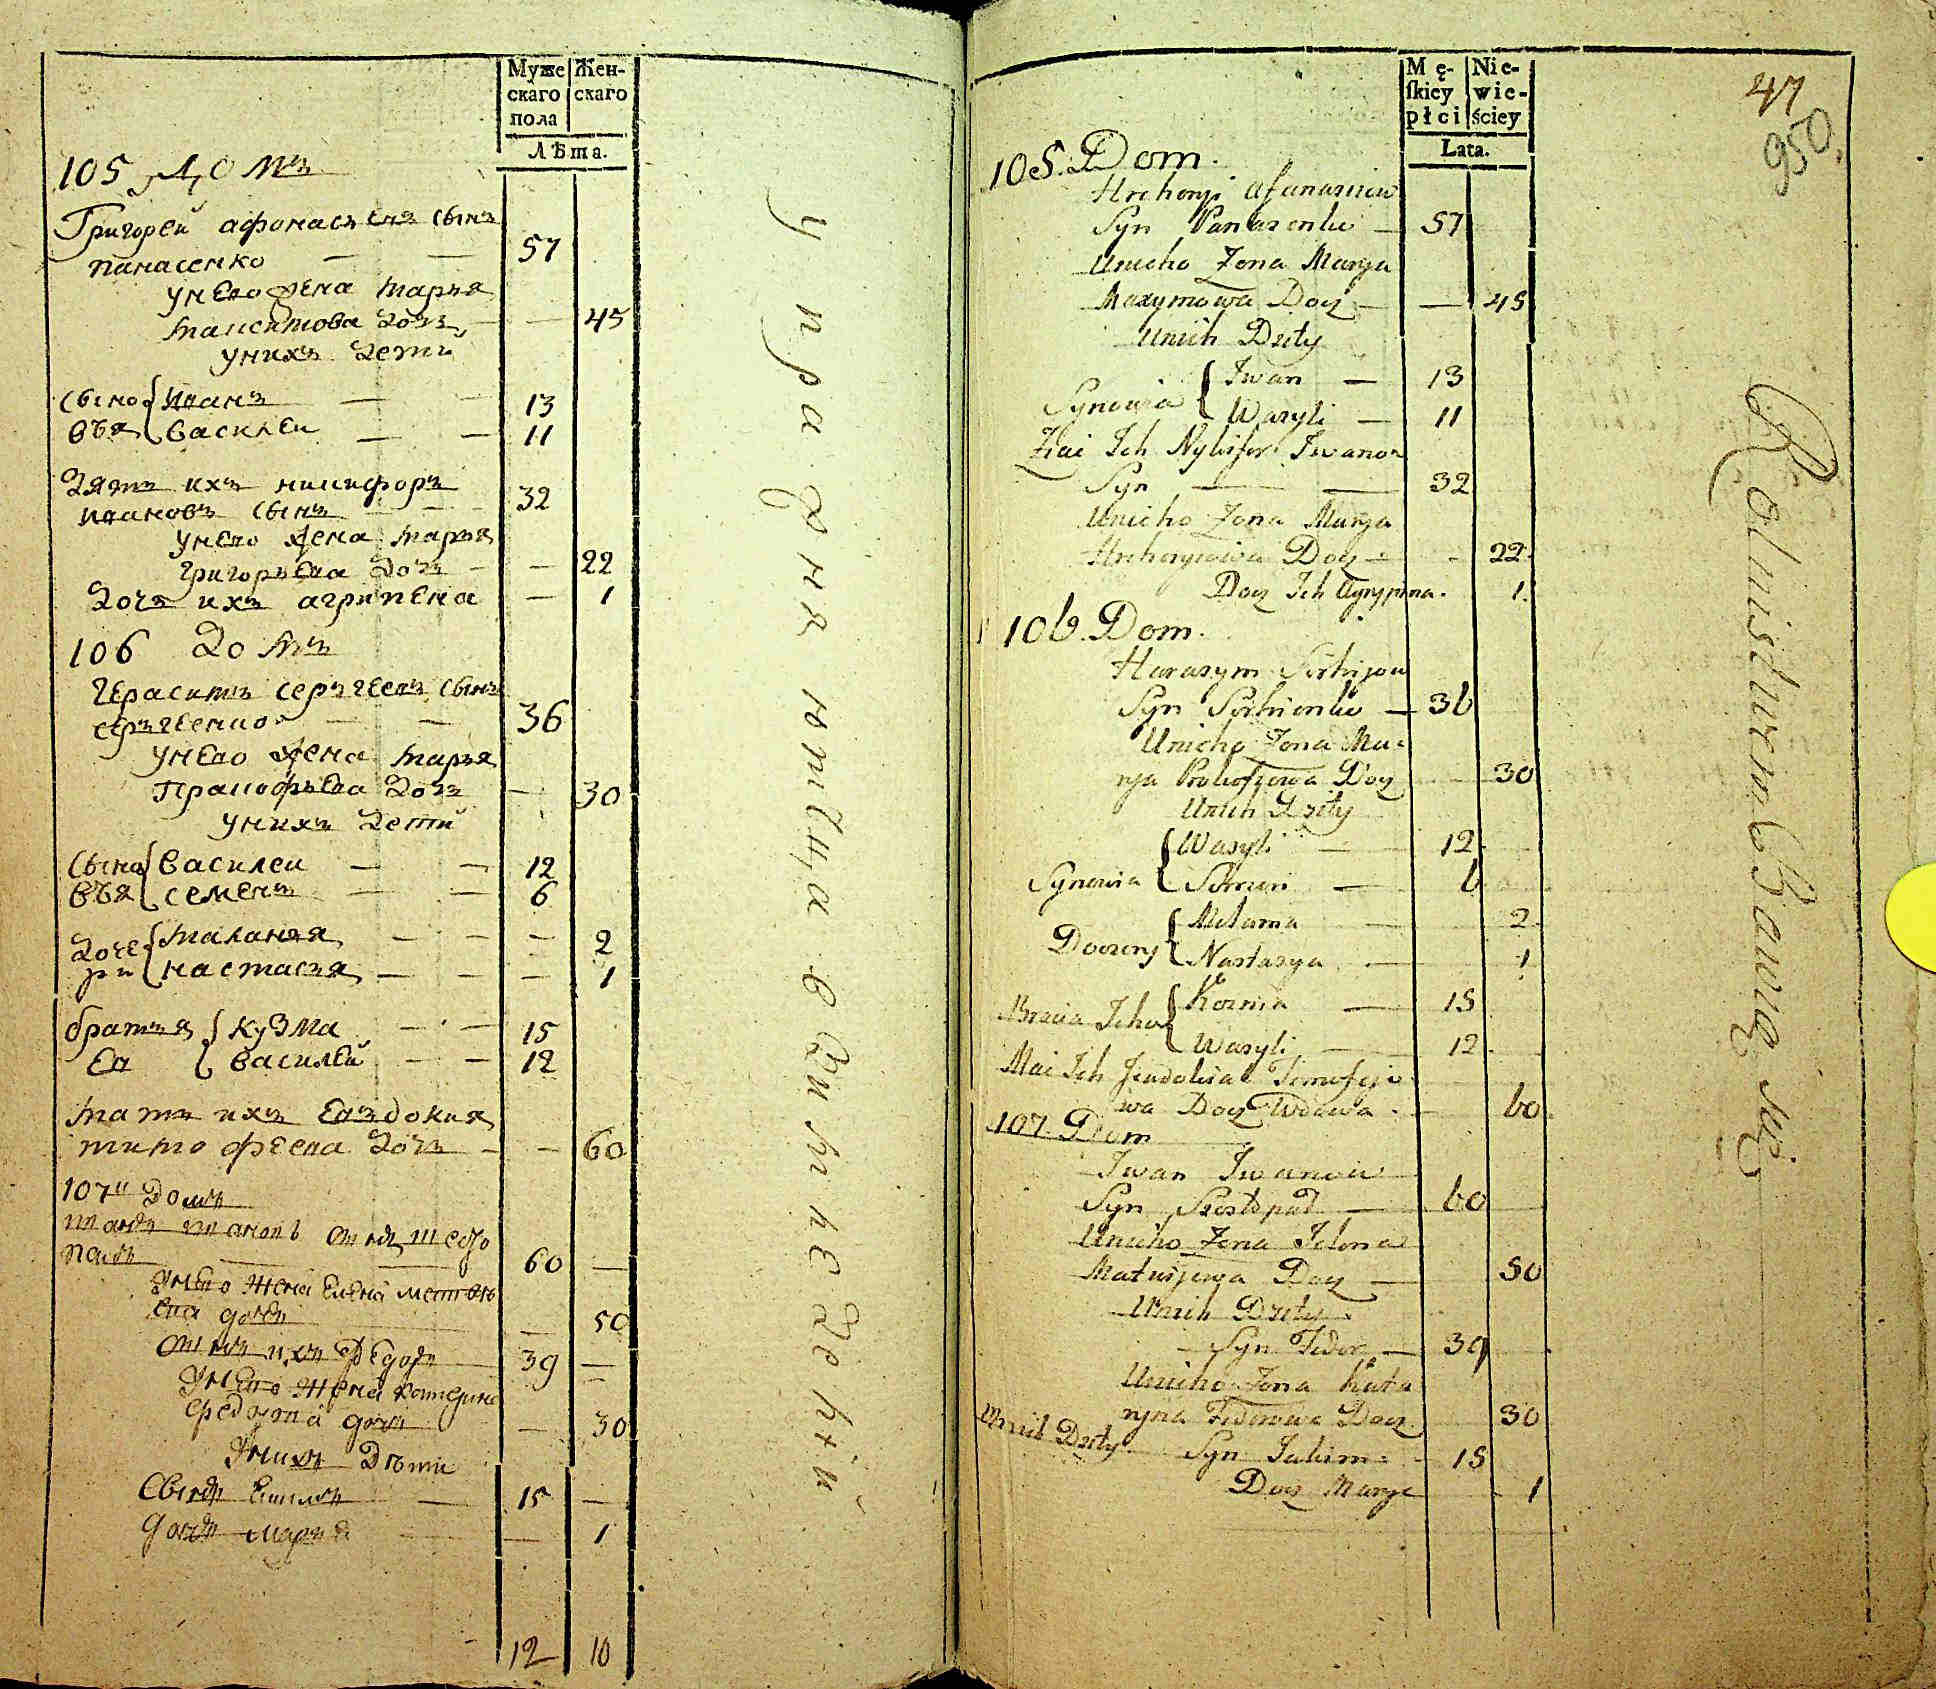 Муже
скаго
пола
Жен-
скаго
Лѣта.
105 Домъ
Григорей афонасьевъ сынъ
панасенко — — 57
унево жена марья
максимова дочь — — 45
унихъ дети
сыно
вья
иванъ — — 13
василеи — — 11
зять ихъ никифоръ
ивановъ сынъ — — 32
унево жена марья
григорьева дочь — — 22
дочь ихъ агрипена — 1
106 домъ
герасимъ сергеевъ сынъ
сергеенко — — 36
унево жена марья
пракофьева дочь — 30
унихъ дети
сыно
вья
василеи — — 12
семенъ — — 6
доче
ри
маланья — — — 2
настасья — — — 1
братья
ево
кузма — — 15
василей — — 12
мать ихъ евдокия
тимофеева дочь — — 60
107 Домъ
иванъ ивановъ сынъ шесто
палъ — — 60 —
унево жена елена матвѣ
ева дочь — 50
сынъ ихъ Федоръ — 39 —
унево жена катерина
федорова дочь — 30
унихъ Дѣти
сынъ екимъ — 15 —
дочь марья — — 1
12 10
упражняются в Сихъ недѣхтъй
Mę-
skiey
płci
Nie-
wie-
ściey
Lata.
47
950
105. Dom.
Hrehorji Afanasiew
Syn Panasenko — 57
Unieho Zona Marya
Maxymowa Docz — — 45
Unich Dzity
Synowia
Iwan — 13
Wasyli — 11
Ziać Ich Nykifor Iwanow
Syn — — 32
Unieho Zona Marya
Hrehorjiowa Docz - - 22
Docz Ich Agrypina. 1.
106. Dom.
Harasym Serhijow
Syn Serhienko — 36
Unieho Zona Ma-
rya Prokofjowa Docz — 30
Unich Dzity
Synowia
Wasyli — 12
Semen — 6
Doczery
Melania — 2
Nastasya — 1
Bracia Jeho
Kozma — 15
Wasyli — 12
Mać Ich Jewdokia Timofeje
wa Docz Wdowa — 60
107. Dom
Iwan Iwanow
Syn Szestopad — 60
Unieho Zona Jelena
Matwijewa Docz — 50
Unich Dzity
Syn Fedor — 39
Unieho Zona Kata
ryna Fedorowa Docz — 30
Unich Dzity Syn Jakim — 15
Docz Marya — 1
Rolnistwem Bawią się